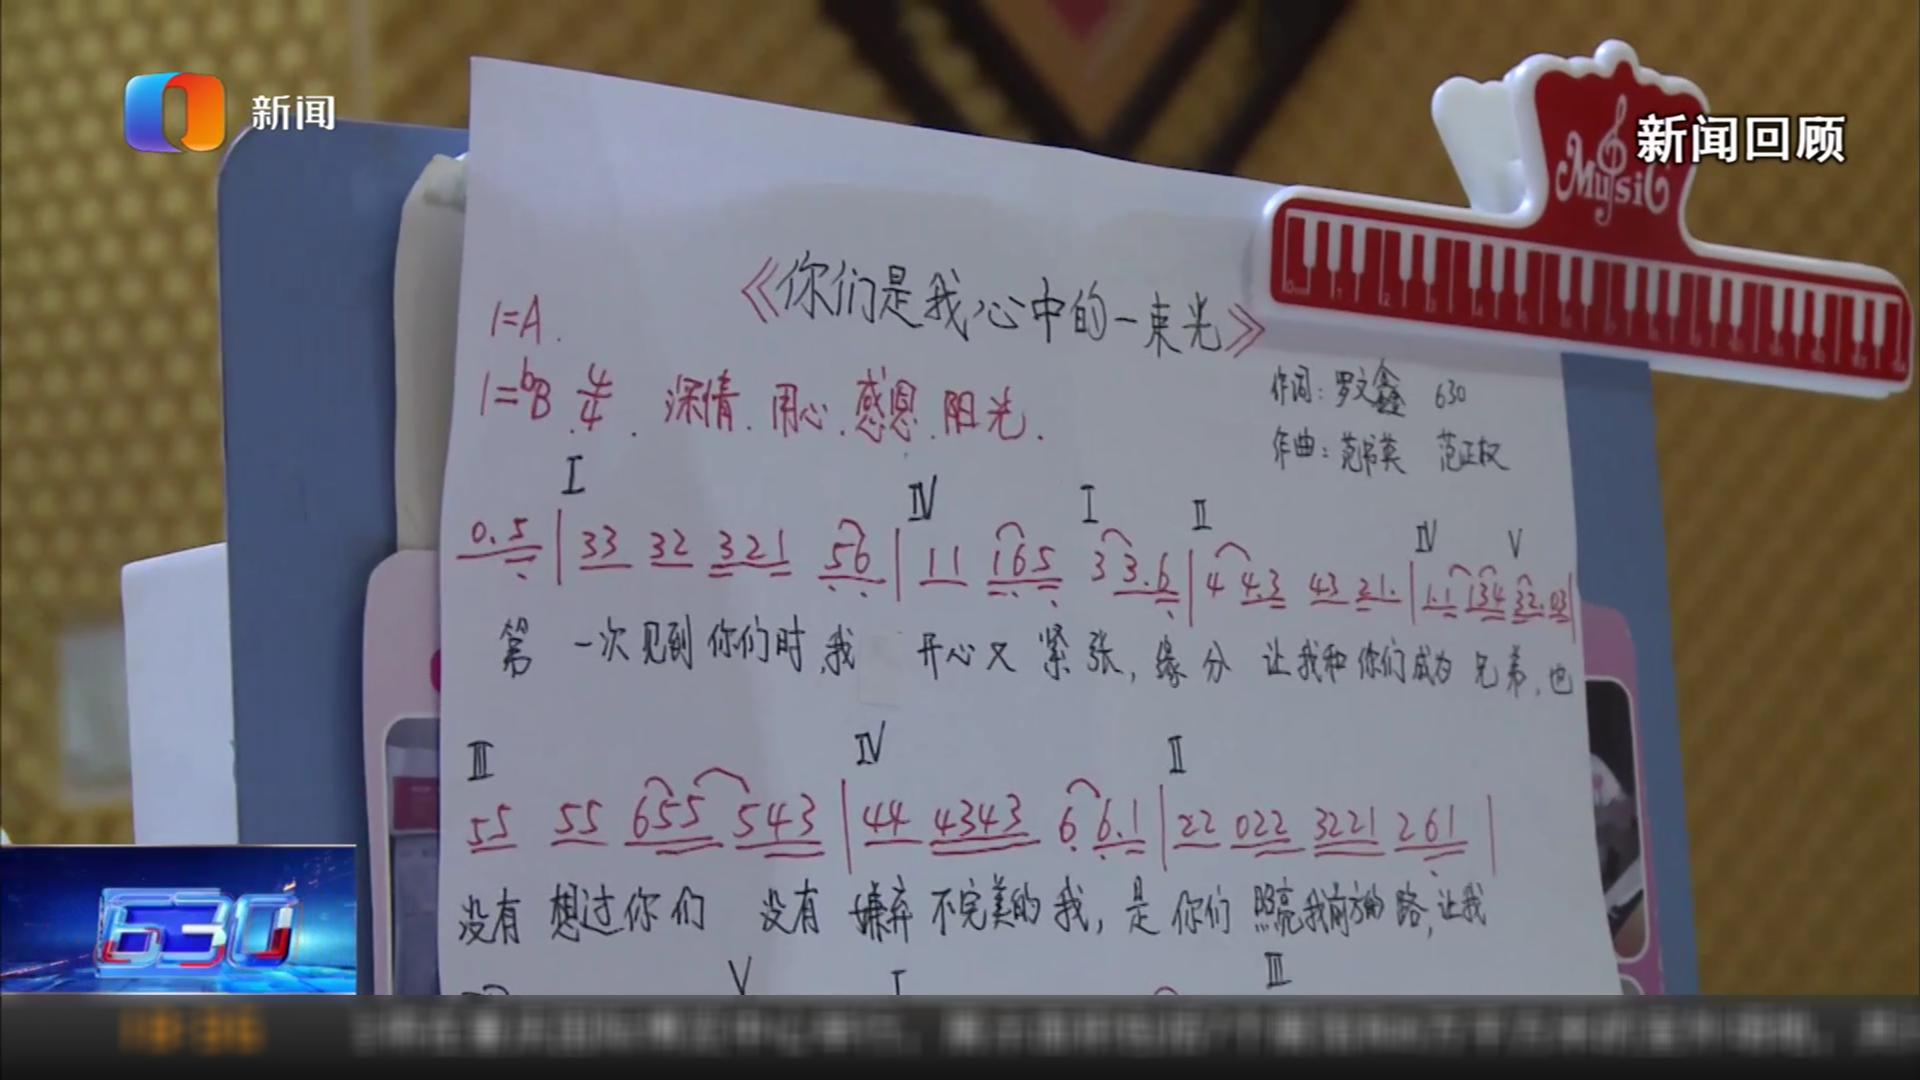 新闻
新闻回顾
Music
《你们是我心中的一束光》
1=A.
1=bB 4/4. 深情.用心.感恩.阳光.
作词:罗文鑫 630
作曲:范书英 范正权
I IV I II IV V
0.5|33 32 321 56|11 165 33.6|44.3 43 21.|1.1 134 32.03|
第一次见到你们时,我 开心又紧张,缘分 让我和你们成为兄弟,也
III IV II
55 55 655 543|44 4343 66.1|22 022 3221 261|
没有想过你们 没有嫌弃不完美的我,是你们 照亮我前方的路,让我
V I III
630